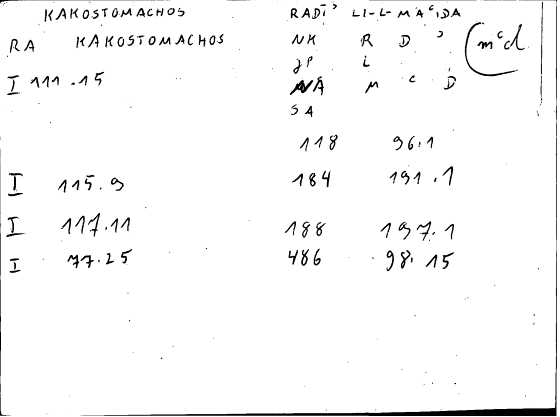 KAKOSTOMACHOS RADĪ' LI-L-MAcIDA
RA KAKOSTOMACHOS NK R D ' mcd
JP L
I 111.15 NA M C D
SA
118 96.1
I 115.9 184 191.1
I 117.11 188 197.1
I 77.25 486 98.15